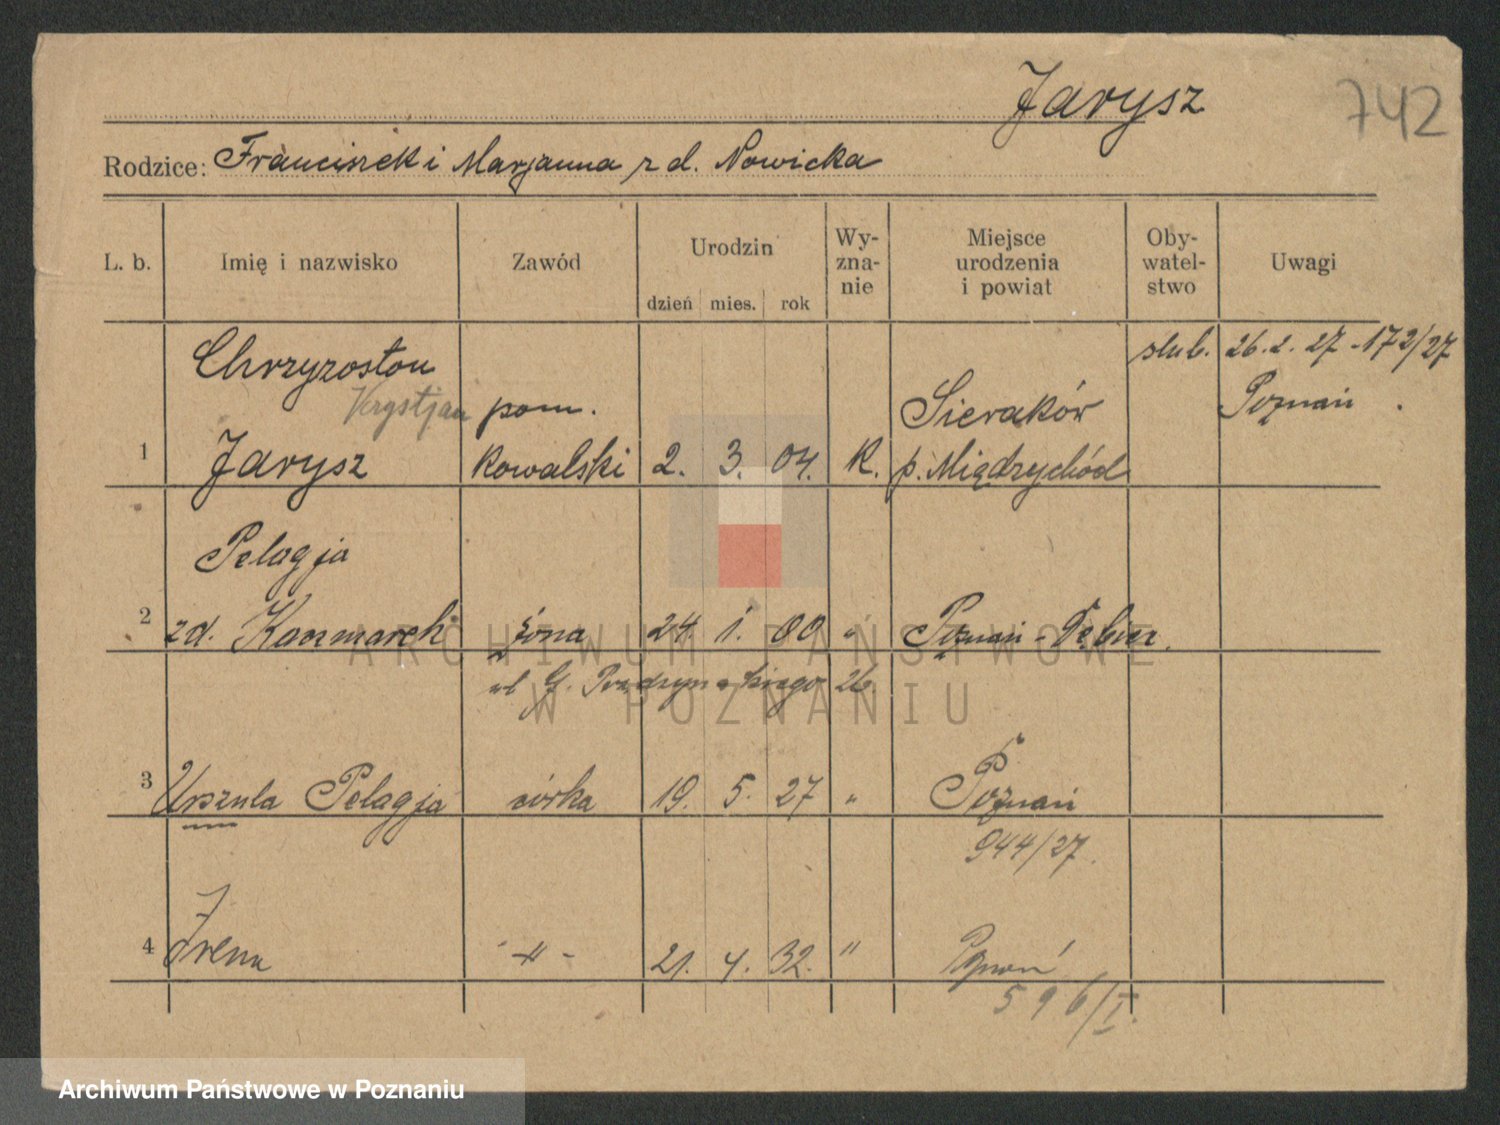 Jarysz 742
Rodzice: Franciszek i Marjanna z d. Nowicka
L. b. Imię i nazwisko Zawód Urodzin dzień mies. rok Wy-zna-nie Miejsce urodzenia i powiat Oby-watel-stwo Uwagi
Chrzyzostom ślub. 26. 2. 27 - 172/27
Krystjan pom. Sieraków Poznań
1 Jarysz kowalski 2. 3. 04. K. p. Międzychód
Pelagja
2 zd. Kaczmarek żona 24. 1. 00 " Poznań - Dębiec
ul. G. 26
3 Urszula Pelagja córka 19. 5. 27 " Poznań
944/27.
4 Irena - " - 21. 4. 32. " Poznań
596/I.
ARCHIWUM PAŃSTWOWE
W POZNANIU
Archiwum Państwowe w Poznaniu